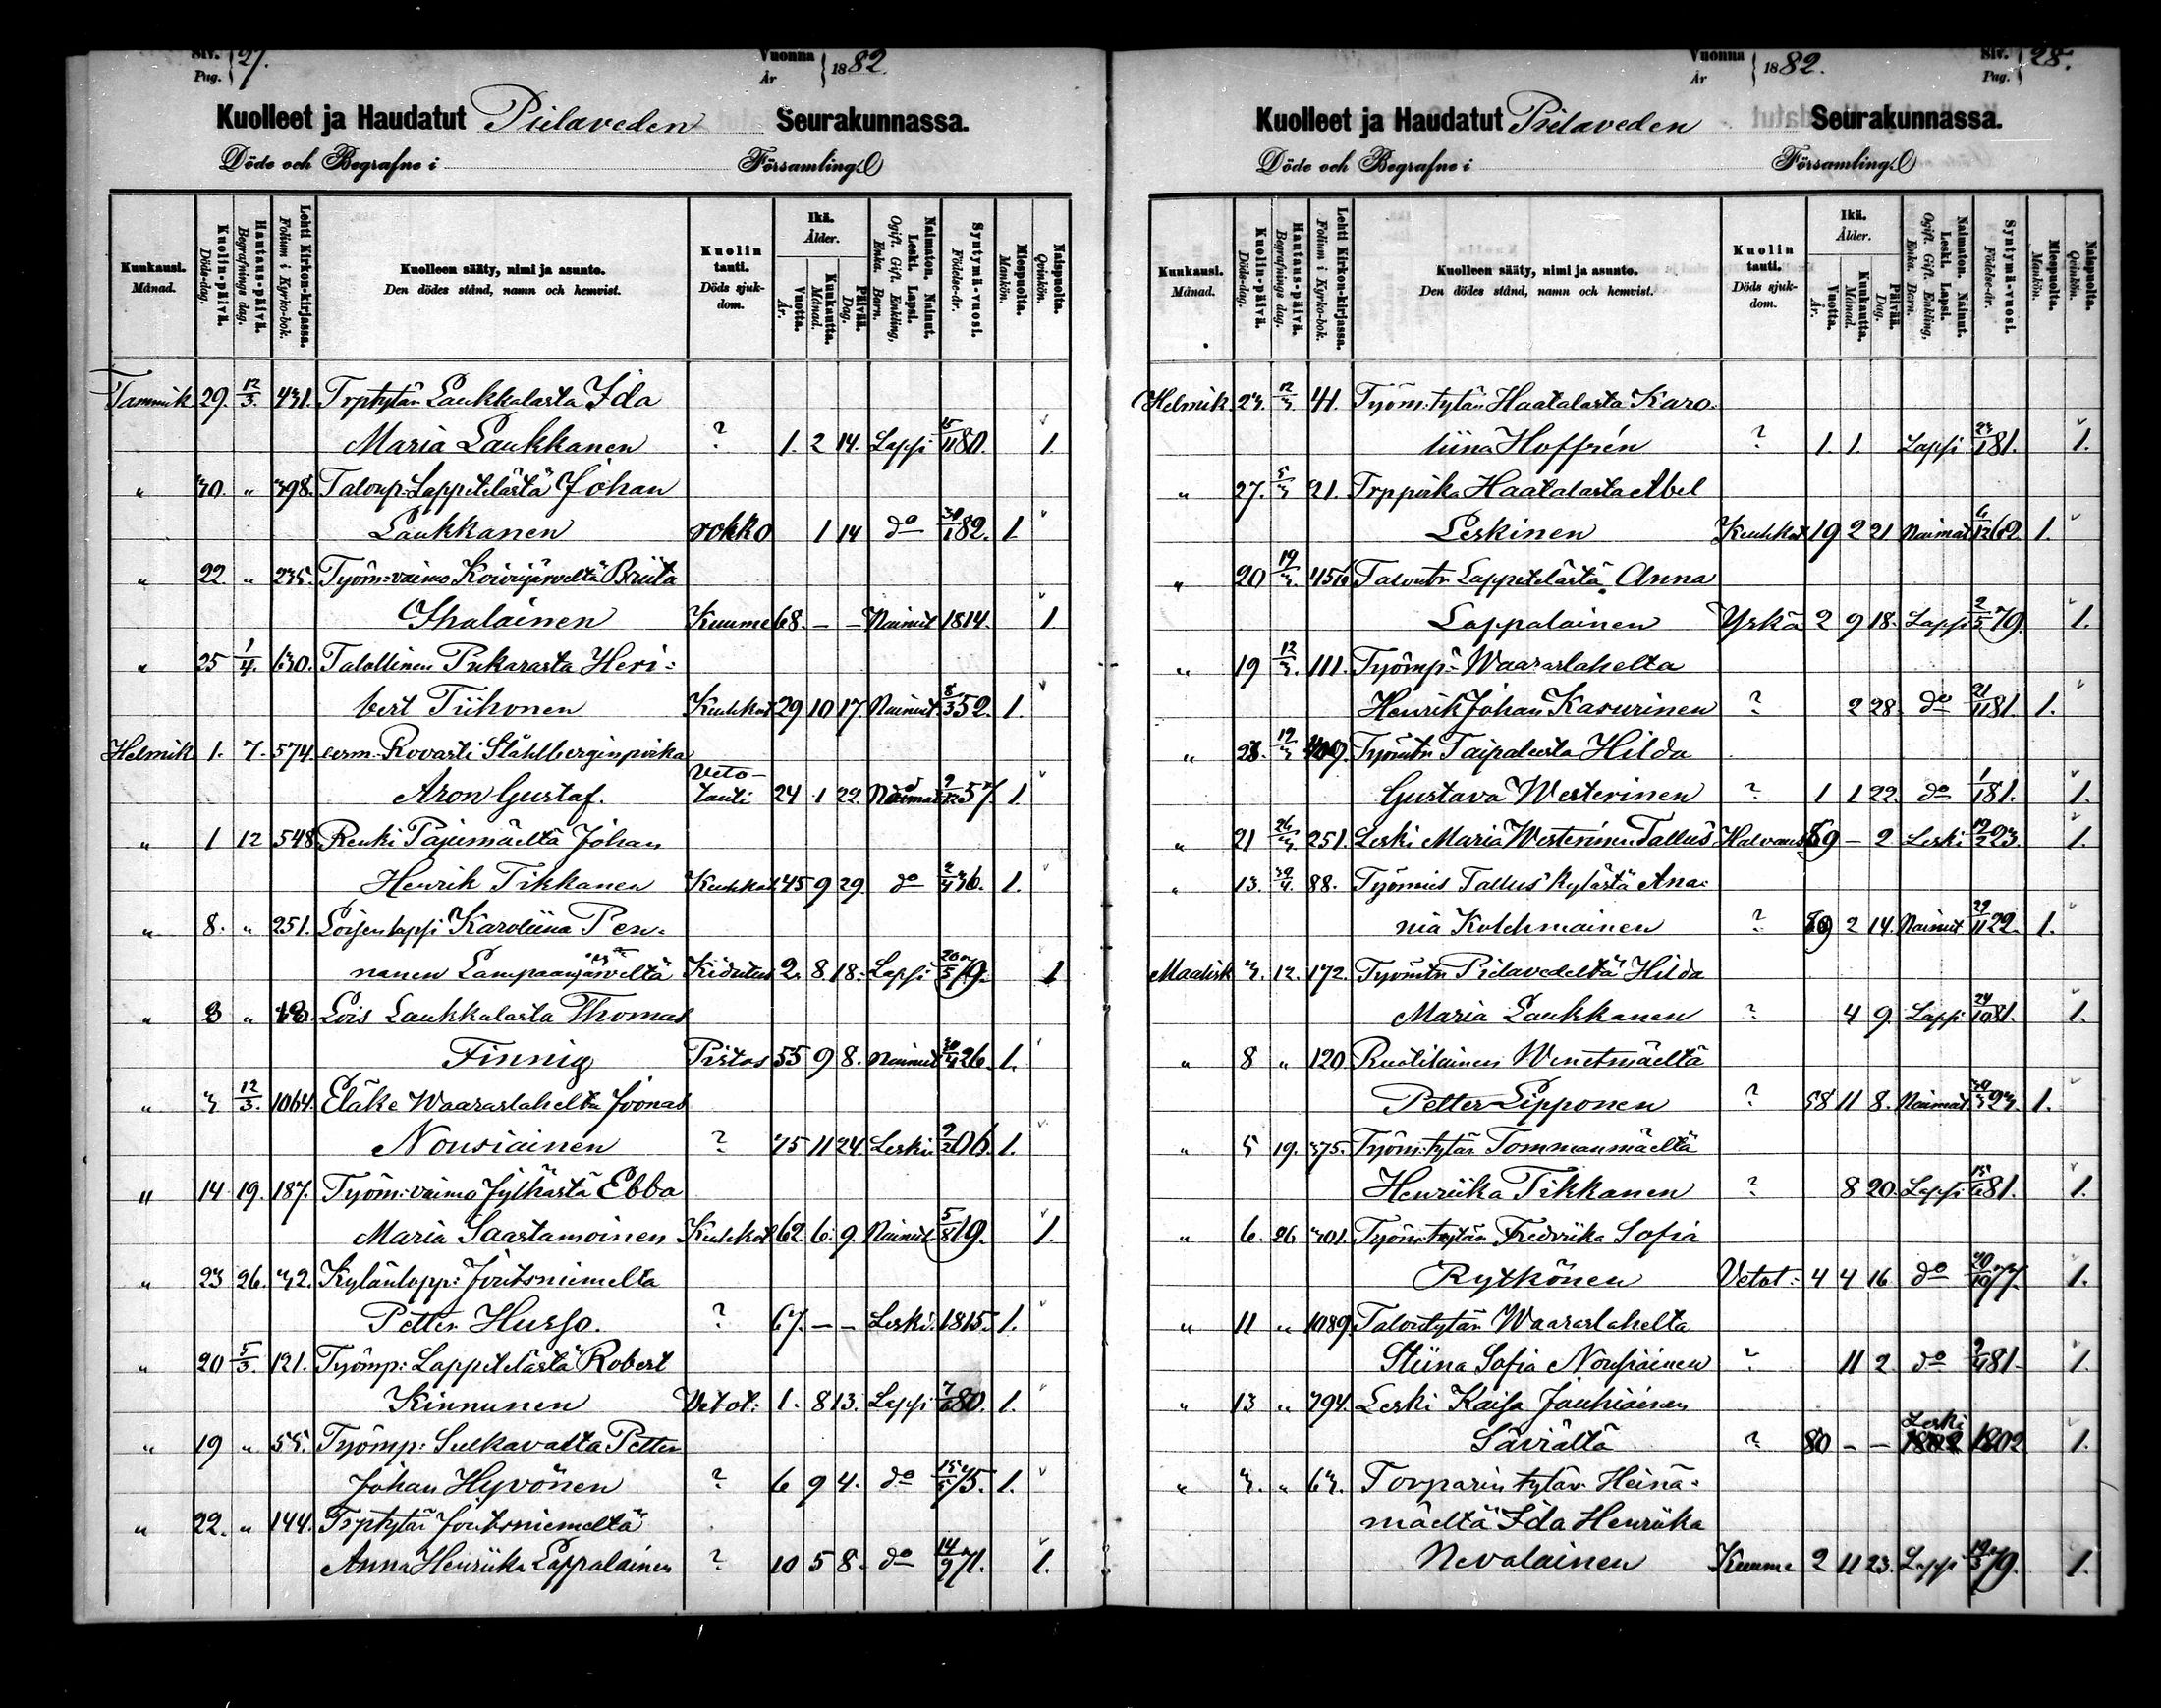 Siv. Pag. } 27.
Vuonna År } 1882.
Kuolleet ja Haudatut Pielaveden Seurakunnassa.
Döde och Begrafne i Församling.
Kuukausi. Månad.
Kuolin-päivä. Döds-dag.
Hautaus-päivä. Begrafnings dag.
Lehti Kirkon-kirjassa. Folium i Kyrko-bok.
Kuolleen sääty, nimi ja asunto. Den dödes stånd, namn och hemvist.
Kuolin tauti. Döds sjukdom.
Ikä. Ålder.
Vuotta. År.
Kuukautta. Månad.
Päivää. Dag.
Naimaton. Nainut. Leski. Lapsi. Ogift. Gift. Enkling, Enka. Barn.
Syntymä-vuosi. Födelse-år.
Miespuolta. Mankön.
Naispuolta. Qvinkön.
Tammik 29. 12/3. 431. Trptytär Laukkalasta Ida
Maria Laukkanen ? 1. 2 14. Lapsi 15/11 80. 1.
" 30. " 398. Talonp: Lappetelästä Johan
Laukkanen rokko 1 14 do 30/1 82. 1.
" 22 " 235. Työm: vaimo Koivujärveltä Briita
Ihalainen Kuume 68. - - Nainut 1814. 1.
" 25 1/4. 630. Talollinen Pukarasta Heri=
bert Tiihonen Keuhkot 29 10 17. Nainut 8/3 52. 1.
Helmik 1. 7. 574. eerm. Rovasti Ståhlbergin poika
Aron Gustaf. Veto-tauti 24 1 22. Naimat 9/12 57. 1.
" 1 12 548 Renki Pajumäeltä Johan
Henrik Tikkanen Keuhkot 45 9 29. do 2/4 36. 1.
" 8. " 251. Loisen lapsi Karoliina Pen=
nanen Lampaanjärveltä Kidutus 2. 8. 18. Lapsi 20/5 79. 1
" 3 " 13. Lois Laukkalasta Thomas
Finnig Pistos 55 9 8. Nainut 30/4 26. 1.
" 3 12/3. 1064. Eläke Waaraslahelta Joonas
Nousiainen ? 75 11 24. Leski 9/2 06. 1.
" 14 19. 187. Työm: vaimo Jylhästä Ebba
Maria Saastamoinen Keuhkot 62. 6. 9. Nainut 5/8 19. 1.
" 23 26. 32. Kylänlapp: Joutsniemeltä
Petter Husso. ? 67. - - Leski. 1815. 1.
" 20 5/3. 121. Työmp: Lappetelästä Robert
Kinnunen Vetot: 1. 8 13. Lapsi 7/6 80. 1.
" 19 " 55. Työmp: Sulkavalta Petter
Johan Hyvönen ? 6 9 4. do 15/5 75. 1.
" 22. " 144. Trptytär Joutsniemeltä
Anna Henriika Lappalainen ? 10 5 8. do 14/9 71. 1.
Vuonna År } 1882.
Siv. Pag. } 28.
Kuolleet ja Haudatut Pielaveden Seurakunnassa.
Döde och Begrafne i Församling.
Kuukausi. Månad.
Kuolin-päivä. Döds-dag.
Hautaus-päivä. Begrafnings dag.
Lehti Kirkon-kirjassa. Folium i Kyrko-bok.
Kuolleen sääty, nimi ja asunto. Den dödes stånd, namn och hemvist.
Kuolin tauti. Döds sjukdom.
Ikä. Ålder.
Vuotta. År.
Kuukautta. Månad.
Päivää. Dag.
Naimaton. Nainut. Leski. Lapsi. Ogift. Gift. Enkling, Enka. Barn.
Syntymä-vuosi. Födelse-år.
Miespuolta. Mankön.
Naispuolta. Qvinkön.
Helmik. 23. 12/3. 41. Työm: tytär Haatalasta Karo=
liina Hoffrén ? 1. 1. Lapsi 23/1 81. 1.
" 27. 5/3 21. Trppoika Haatalasta Abel
Leskinen Keuhkot 19 2 21 Naimat 6/12 62. 1.
" 20 19/3. Talontr Lappetelästä Anna
Lappalainen Yskä 2 9 18. Lapsi 2/5 79. 1.
" 19 12/3. 111. Työmp: Waaraslahelta
Henrik Johan Kasurinen ? 2 28. do 21/11 81. 1.
" 19/3 Työmtr Taipaleesta Hilda
Gustava Westerinen ? 1 1 22. do 1/1 81. 1.
" 21 26/3 251. Leski Maria Westerinen Tallus Halvaus 59 - 2. Leski 19/2 23. 1.
" 13. 30/4. 88. Työmies Tallus kylästä Ana=
nia Kolehmainen ? 59 2 14. Nainut 29/11 22. 1.
Maalisk 3. 12. 172. Työmtr Pielavedeltä Hilda
Maria Laukkanen ? 4 9. Lapsi 24/10 81. 1.
" 8 " 120 Ruotilainen Wenetmäeltä
Petter Lipponen ? 58 11 8. Naimat 30/3 23. 1.
" 5 19. 375. Työm: tytär Tommanmäeltä
Henriika Tikkanen ? 8 20. Lapsi 15/6 81. 1.
" 6. 26 301. Työm: tytär Fredriika Sofia
Rytkönen Vetot: 4 4 16 do 20/10 77. 1.
" 11 " 1089 Talontytär Waaraslahelta
Stiina Sofia Nousiainen ? 11 2. do 9/4 81. 1.
" 13 " 794. Leski Kaisa Jauhiainen
Säviältä ? 80 - - Leski 1802 1.
" 3. " 63. Torparin tytär Heinä=
mäeltä Ida Henriika
Nevalainen Kuume 2 11 23. Lapsi 10/3 79. 1.